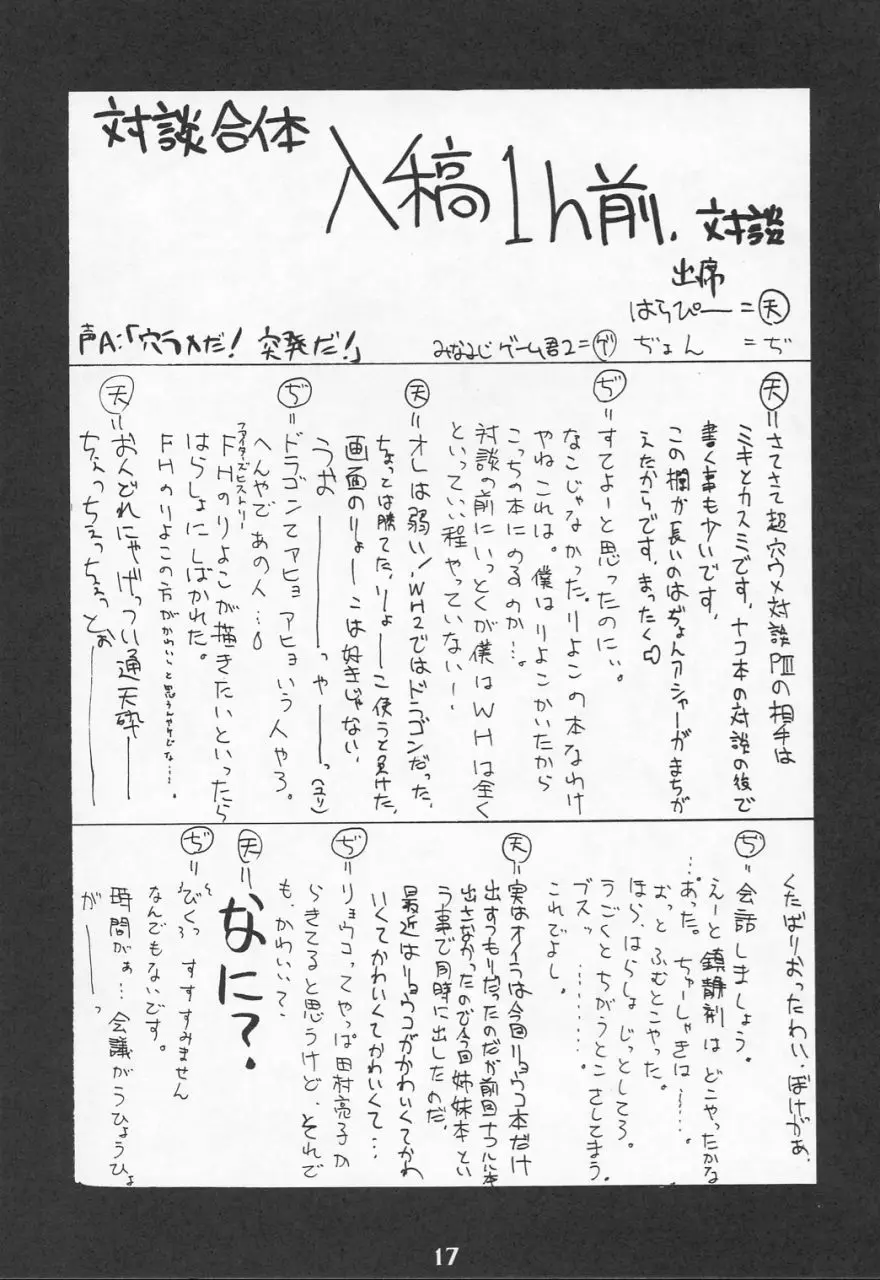 対談合体
入稿1h前.対談
出席
はらぴー=天
みなみじゲーム君2=ゲ ぢょん =ぢ
声A:「穴ウメだ!突発だ!」
天=さてさて超穴ウメ対談PⅢの相手は
ミキとカスミです、ナコ本の対談の後で
書く事も少いです、
この欄が長いのはぢょんアシャーがまちが
えたからです、まったく
ぢ=すてよーと思ったのにぃ。
なこじゃなかった。りよこの本なわけ
やねこれは。僕はりよこかいたから
こっちの本にのるのか…。
対談の前にいっとくが僕はWHは全く
といっていい程やっていないー、
天=オレは弱い!、WH2ではドラゴンだった、
ちょっとは勝てた、りょーこ使うと負けた、
画面のりょーこは好きじゃない、
うおーーーっやーーっ(ユリ)
ぢ=ドラゴンてアヒョアヒョいう人やろ。
へんやであの人…。
ファイターズヒストリー
FHのりよこが描きたいといったら
はらしょにしばかれた。
FHのりよこの方がかわいいと思うんやけどな…。
天=おんどれにゃげっつい通天砕ーー
ちぇっちぇっちぇっとおーーー
くたばりおったわい・ぼけがぁ、
ぢ=会話しましょう。
えーと鎮静剤はどこやったかな
…あった。ちゅーしゃきは……。
おっとふむとこやった。
ほら、はらしょじっとしてろ。
うごくとちがうとこさしてまう。
ブスッ………。
これでよし。
天=実はオイラは今回リョウコ本だけ
出すつもりだったのだが前回ナコルル本
出さなかったので今回姉妹本とい
う事で同時に出したのだ、
最近はリョウコがかわいくてかわ
いくてかわいくてかわいくて…
ぢ=リョウコってやっぱ田村亮子か
らきてると思うけど、それで
も、かわいい?、
天=なに?.
ぢ=びくっ すすすみません
なんでもないです。
時間がぁ…会議がうひょうひょ
がーーっ
17